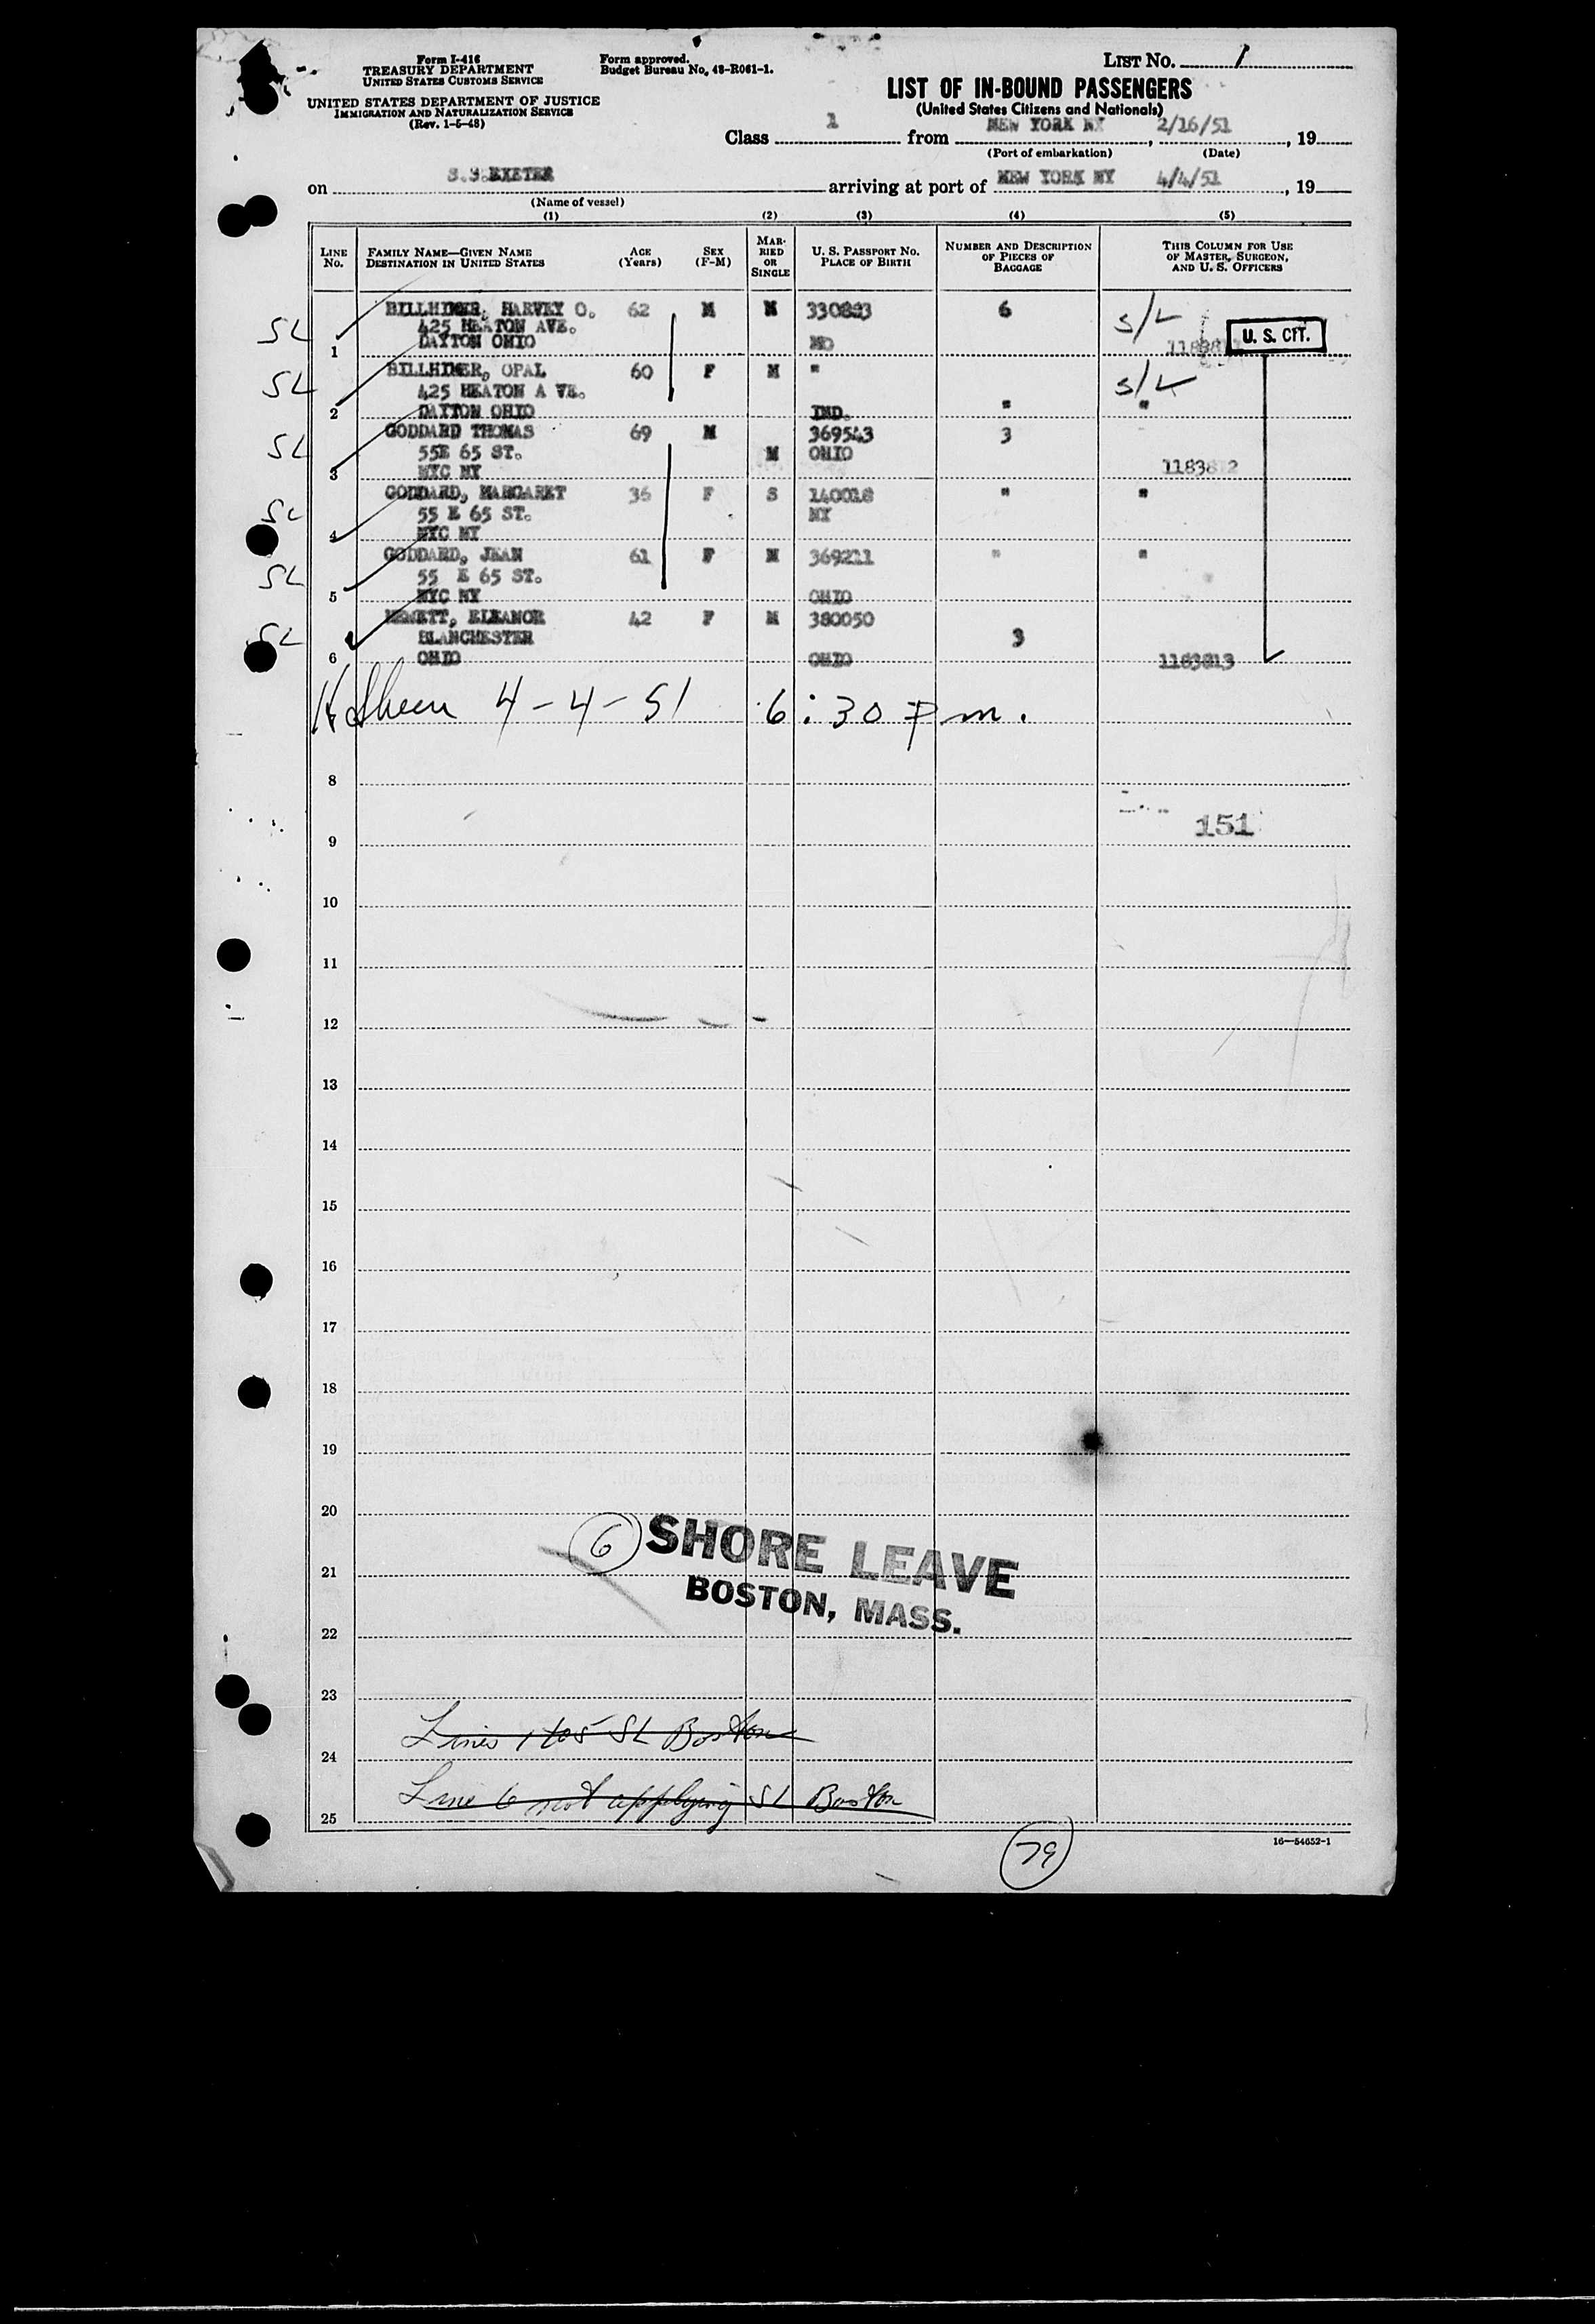 Form I-416
TREASURY DEPARTMENT
UNITED STATES CUSTOMS SERVICE
UNITED STATES DEPARTMENT OF JUSTICE
IMMIGRATION AND NATURALIZATION SERVICE
(Rev. 1-5-48)
Form approved.
Budget Bureau No. 43-R061-1.
LIST No. 1
LIST OF IN-BOUND PASSENGERS
(United States Citizens and Nationals)
Class 1 from NEW YORK NY, 2/16/51, 19
(Port of embarkation) (Date)
on S.S.EXETER arriving at port of NEW YORK NY 4/4/51, 19
(Name of vessel)
(1) (2) (3) (4) (5)
LINE No. FAMILY NAME—GIVEN NAME DESTINATION IN UNITED STATES AGE (Years) SEX (F-M) MARRIED OR SINGLE U. S. PASSPORT No. PLACE OF BIRTH NUMBER AND DESCRIPTION OF PIECES OF BAGGAGE THIS COLUMN FOR USE OF MASTER, SURGEON, AND U. S. OFFICERS
BILLHIMER, HARVEY O. 62 M M 6 S/L
SL 425 HEATON AVE. U. S. CIT.
1 DAYTON OHIO
BILLHIMER, OPAL 60 F M " S/L
SL 425 HEATON A VE.
2 DAYTON OHIO IND. " "
GODDARD THOMAS 69 M 369543 3
SL 55E 65 ST. M OHIO
3 NYC NY
GODDARD, MARGARET 36 F S 140018 " "
SL 55 E 65 ST. NY
4 NYC NY
GODDARD, JEAN 61 F M 369211 " "
SL 55 E 65 ST.
5 NYC NY OHIO
ELEANOR 42 F M 380050
SL BLANCHESTER 3
6 OHIO OHIO 1183813
H Sheen 4-4-51 6:30 pm.
8
151
9
10
11
12
13
14
15
16
17
18
19
20
6 SHORE LEAVE
21
BOSTON, MASS.
22
23
Lines 1 to 5 SL Boston
24
Line 6 not applying SL Boston
25
16—54652-1
79